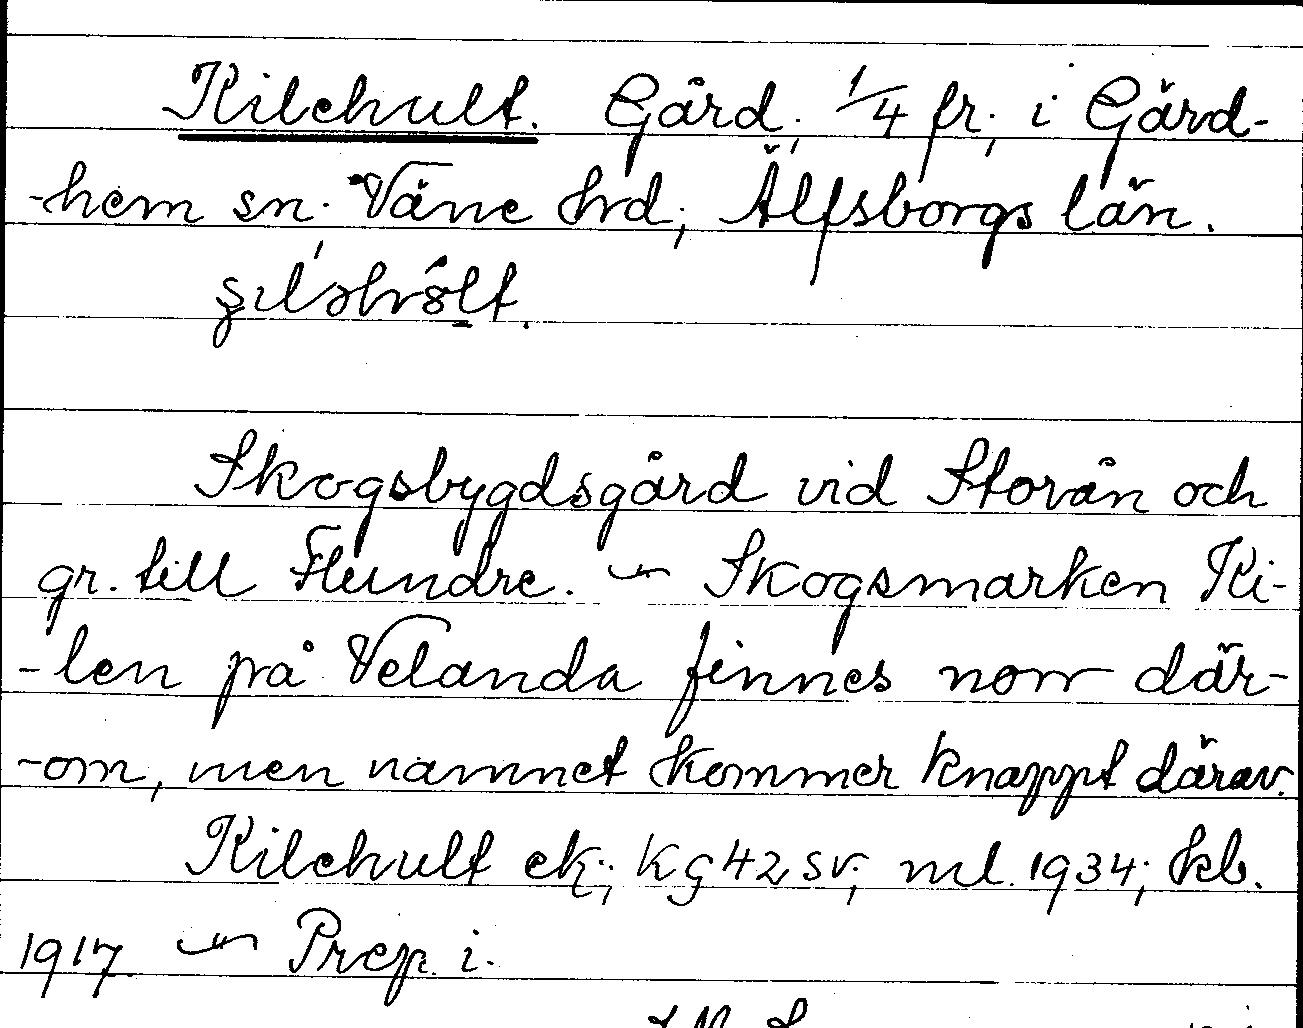 Kilehult. Gård, 1/4 fr, i Gärd-
-hem sn. Väne hrd, Älfsborgs län.
Skogsbygdsgård vid Storån och
gr. till Flundre. ~ Skogsmarken Ki-
-len på Velanda finnes norr där-
-om, men namnet kommer knappt därav.
Kilehult ek; Kg 42 sv; ml. 1934; kb.
1917. ~ Prep. i.